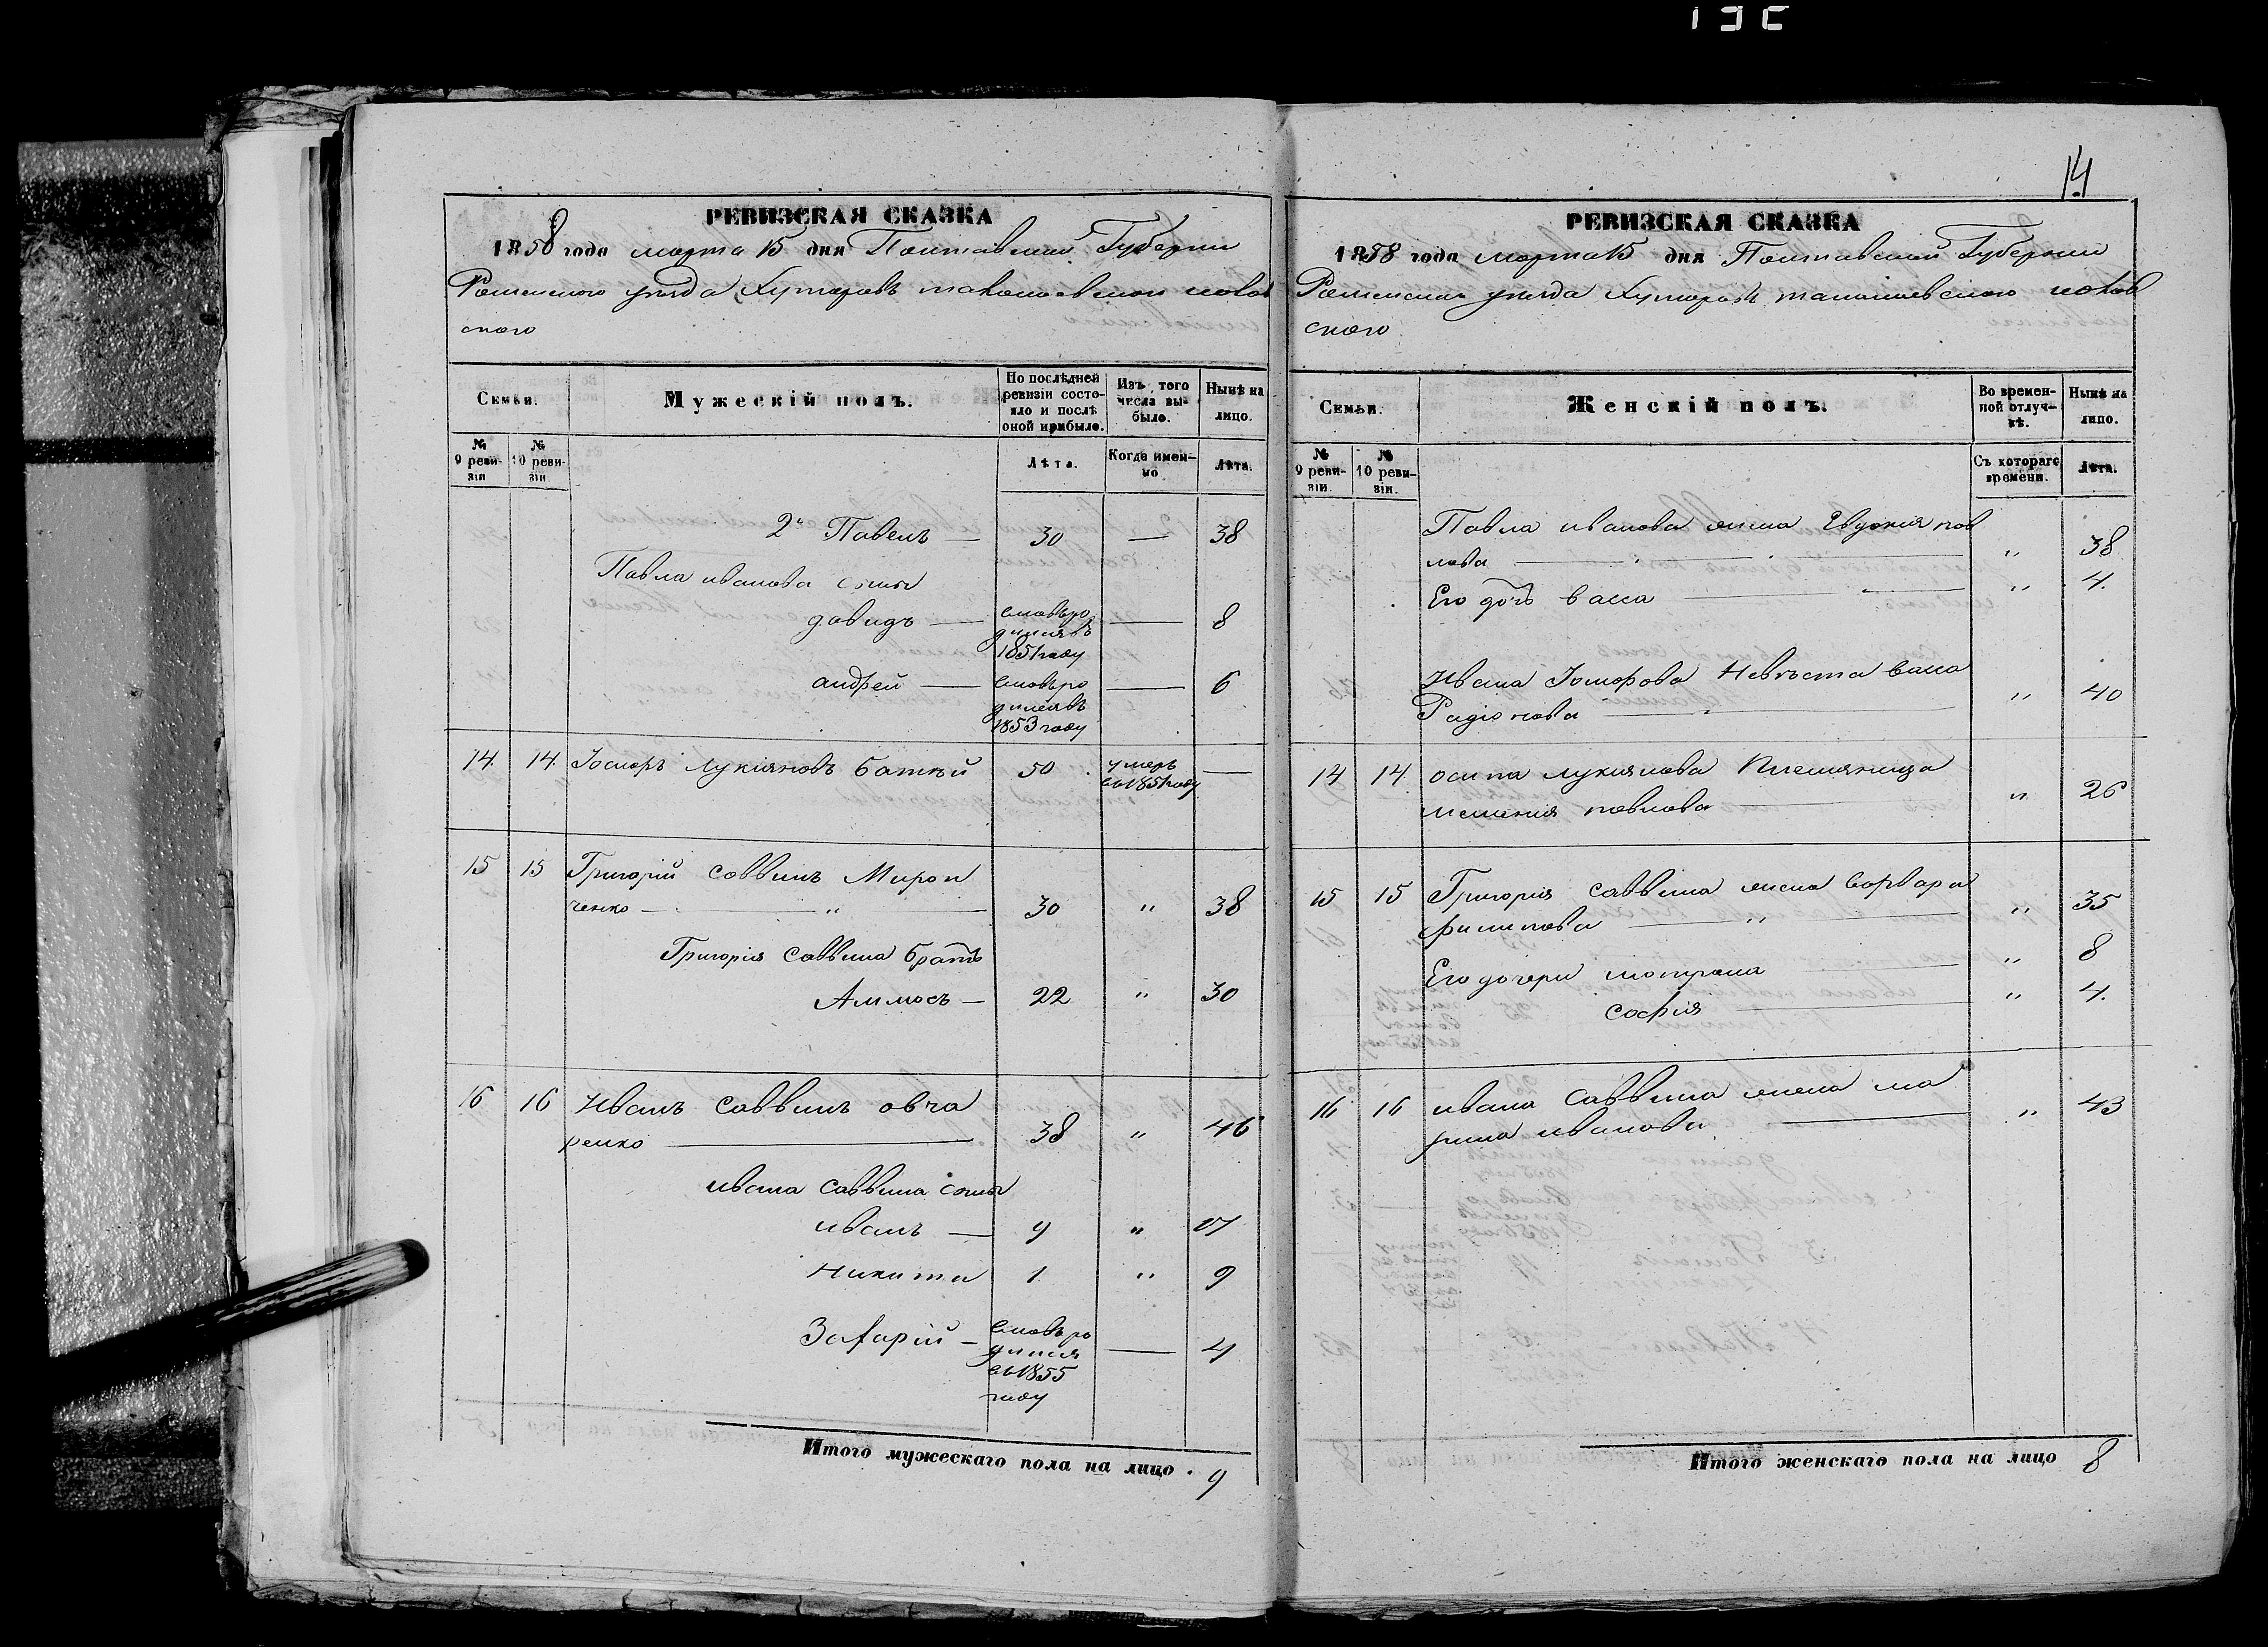 14
РЕВИЗСКАЯ СКАЗКА
1858 года марта 15 дня Полтавской Губерніи
Роменского уезда Хуторовъ
ского
Семьи.
Мужескій полъ.
По послѣдней ревизіи состояло и послѣ оной прибыло.
Изъ того числа выбыло.
Нынѣ на лицо.
№ 9 ревизіи
№ 10 ревизіи
Лѣта.
Когда именно
Лѣта.
2й Павелъ — 30 — 38
Павла иванова сыны
давидъ — вновь родился въ 1851 году — 8
андрей — вновь родился въ 1853 году — 6
14 14 Іосифъ Лукіяновъ 50 умеръ въ 1851 году —
15 15 Григорій саввинъ Мирон
ченко — 30 " 38
Григорія саввина братъ
Аммосъ — 22 " 30
16 16 Иванъ саввинъ овча
ренко — 38 " 46
ивана саввина сыны
иванъ — 9 " 17
Никита 1 " 9
Захарій — вновь родился въ 1855 году — 4
Итого мужескаго пола на лицо . 9
РЕВИЗСКАЯ СКАЗКА
1858 года марта 15 дня Полтавской Губерніи
Роменского уезда Хуторовъ
ского
Семьи.
Женскій полъ.
Во временной отлучкѣ.
Нынѣ на лицо.
№ 9 ревизіи.
№ 10 ревизіи.
Съ котораго времени.
Лѣта.
Павла иванова жена Евдокия пав
лова — " 38
Его дочь васса — " 4.
Ивана Іосифова Невѣста васса
Радіонова — " 40
14 14. осипа лукиянова племяница
павлова — " 26
15 15 Григория саввина жена варвара
филипова — " 35
Его дочери мотрона — " 8
софія — " 4.
16 16 ивана саввина жена ма
рина иванова — " 43
Итого женскаго пола на лицо 8